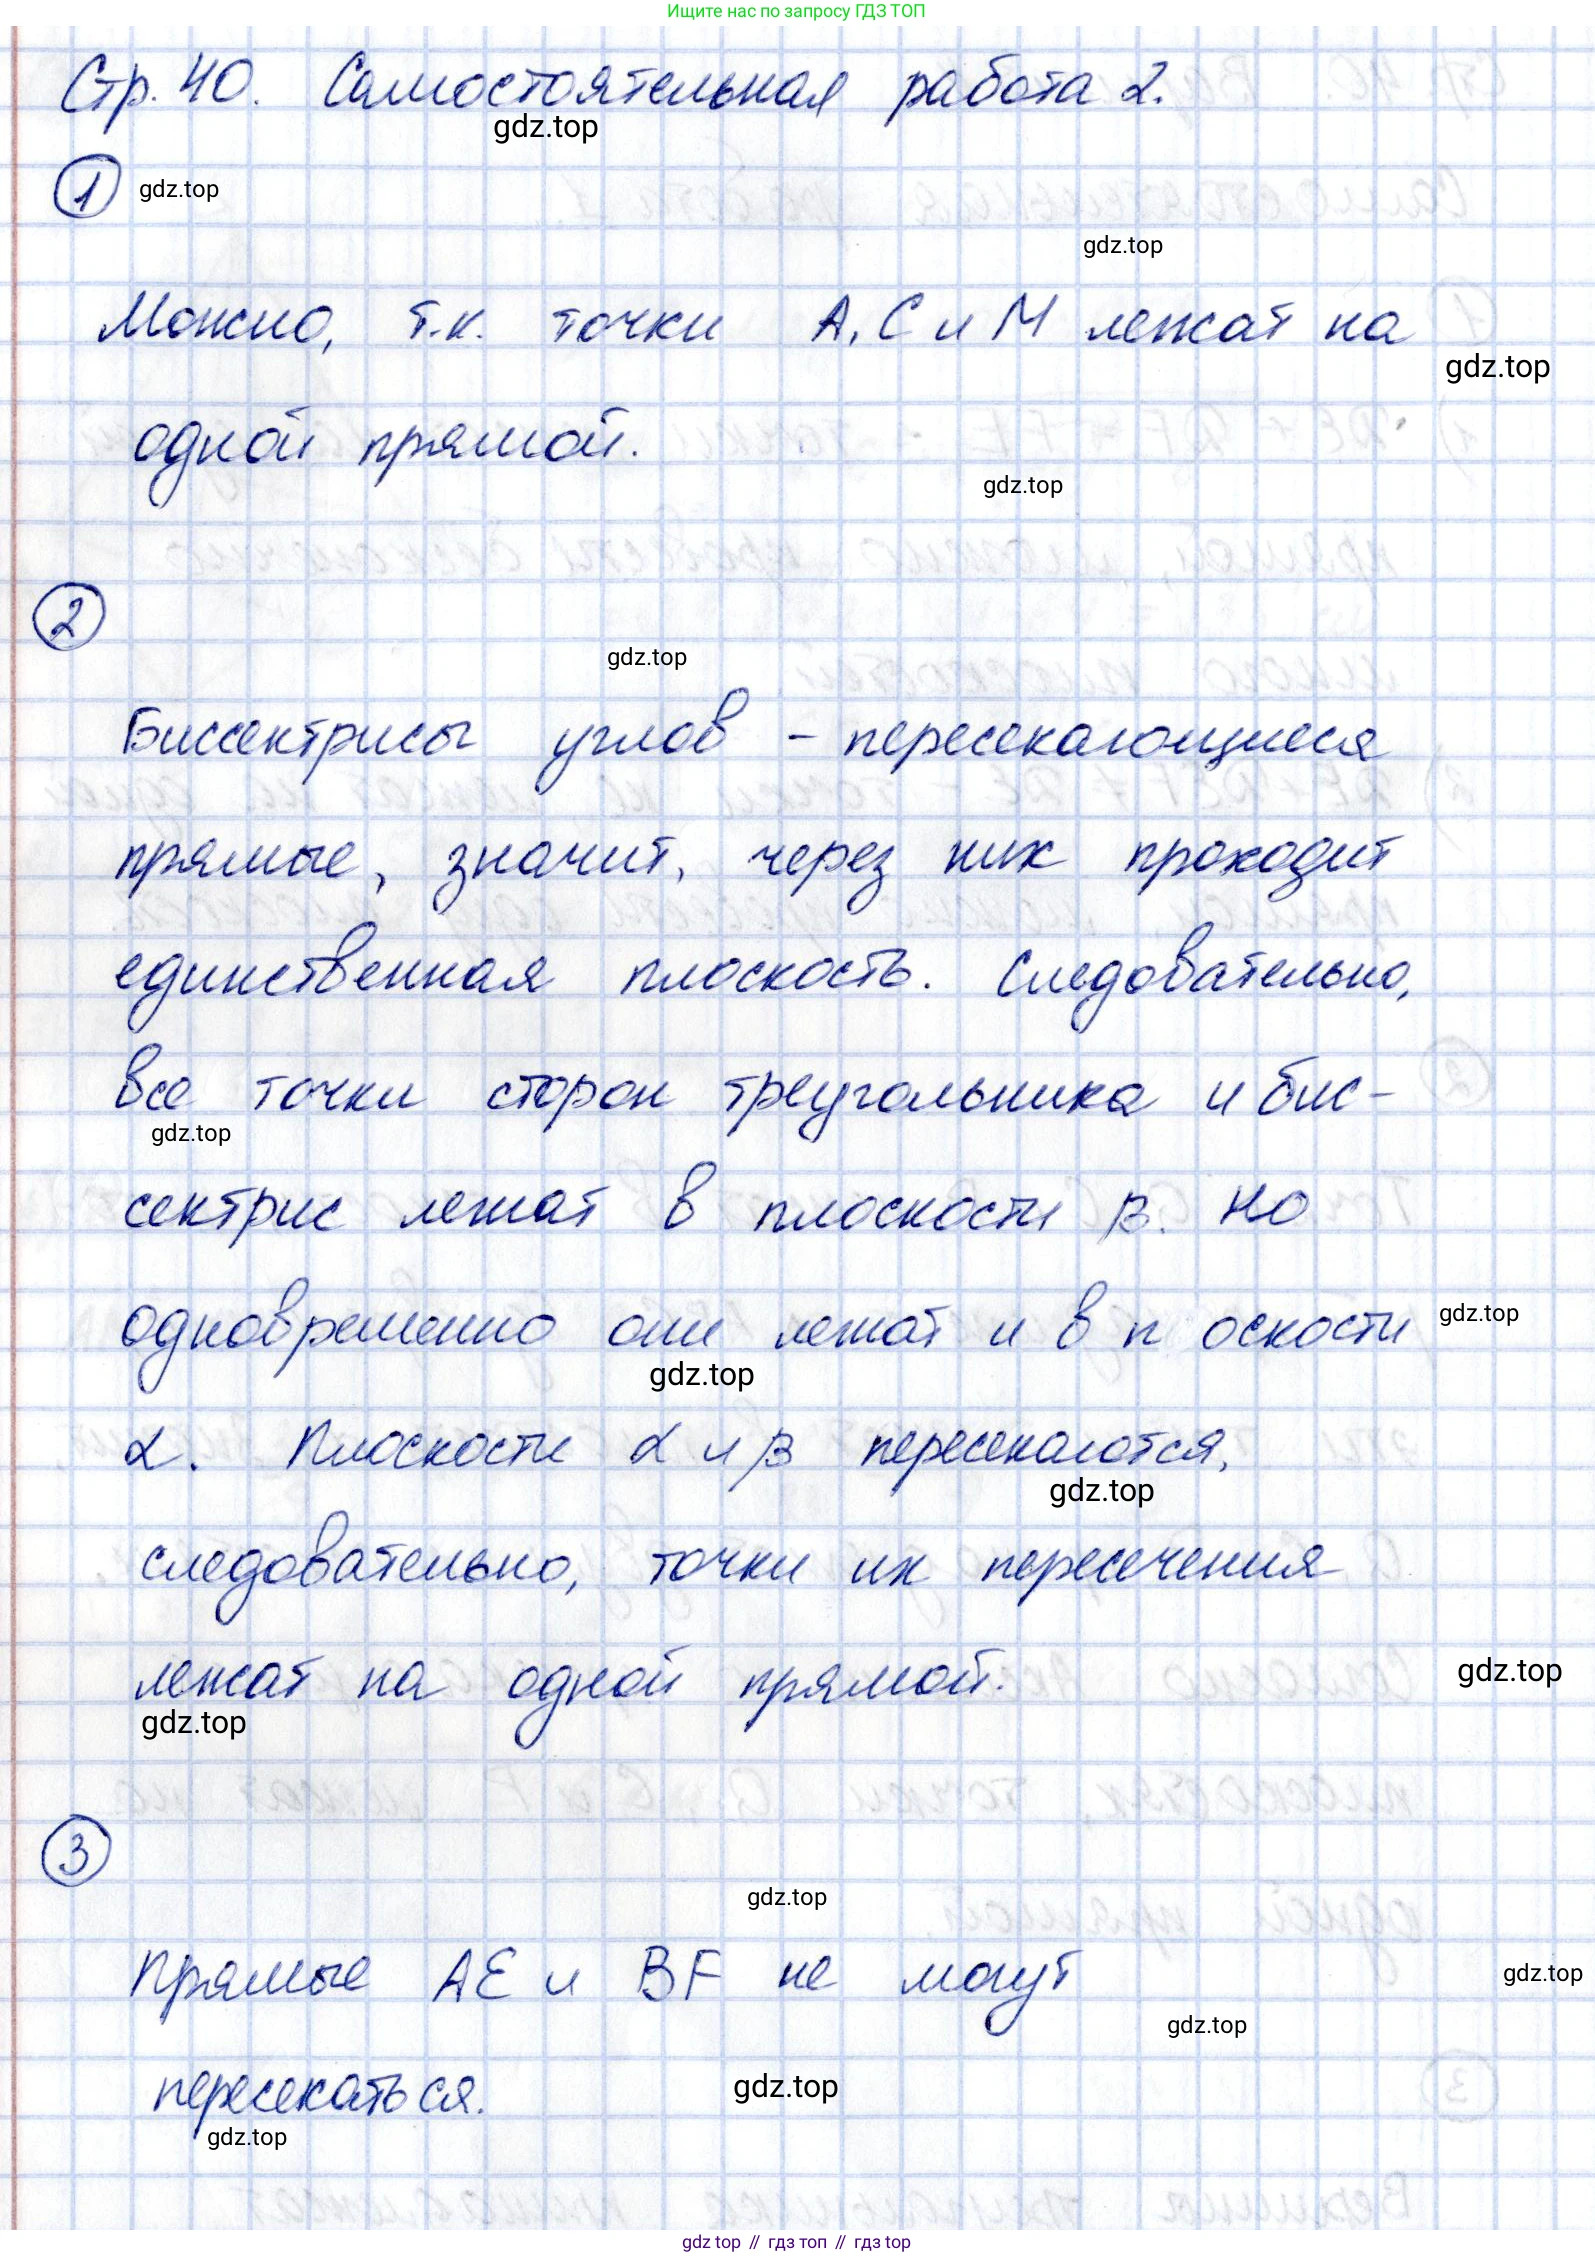 Ищите нас по запросу ГДЗ ТОП
Стр. 40. Самостоятельная работа 2.
gdz.top
1 gdz.top
gdz.top
Можно, т.к. точки А, С и М лежат на
gdz.top
одной прямой.
gdz.top
2
gdz.top
Биссектрисы углов - пересекающиеся
прямые, значит, через них проходит
единственная плоскость. Следовательно,
все точки сторон треугольника и бис-
gdz.top
сектрис лежат в плоскости β. Но
одновременно они лежат и в п оскости gdz.top
gdz.top
α. Плоскости α и β пересекаются,
gdz.top
следовательно, точки их пересечения
лежат на одной прямой. gdz.top
gdz.top
3
gdz.top
Прямые АЕ и BF не могут gdz.top
gdz.top
пересекаться. gdz.top
gdz.top
gdz top // гдз топ // гдз top